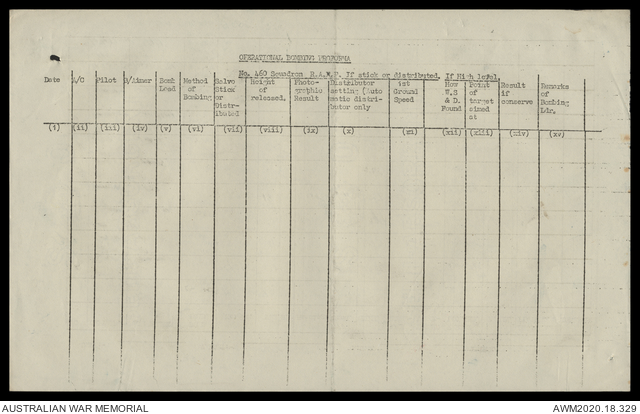 OPERATIONAL BOMBING PROFORMA
No. 460 Squadron R.A.A.F. If stick or distributed. If High level.
Date A/C Pilot B/Aimer Bomb Load Method of Bombing Salvo Stick or Distr- ibuted Height of released. Photo- graphic Result Distributor setting (Auto matic distri- butor only 1st Ground Speed How W.S & D. Found Point of target aimed at Result if conserve Remarks of Bombing Ldr.
(i) (ii) (iii) (iv) (v) (vi) (vii) (viii) (ix) (x) (xi) (xii) (xiii) (xiv) (xv)
AUSTRALIAN WAR MEMORIAL
AWM2020.18.329